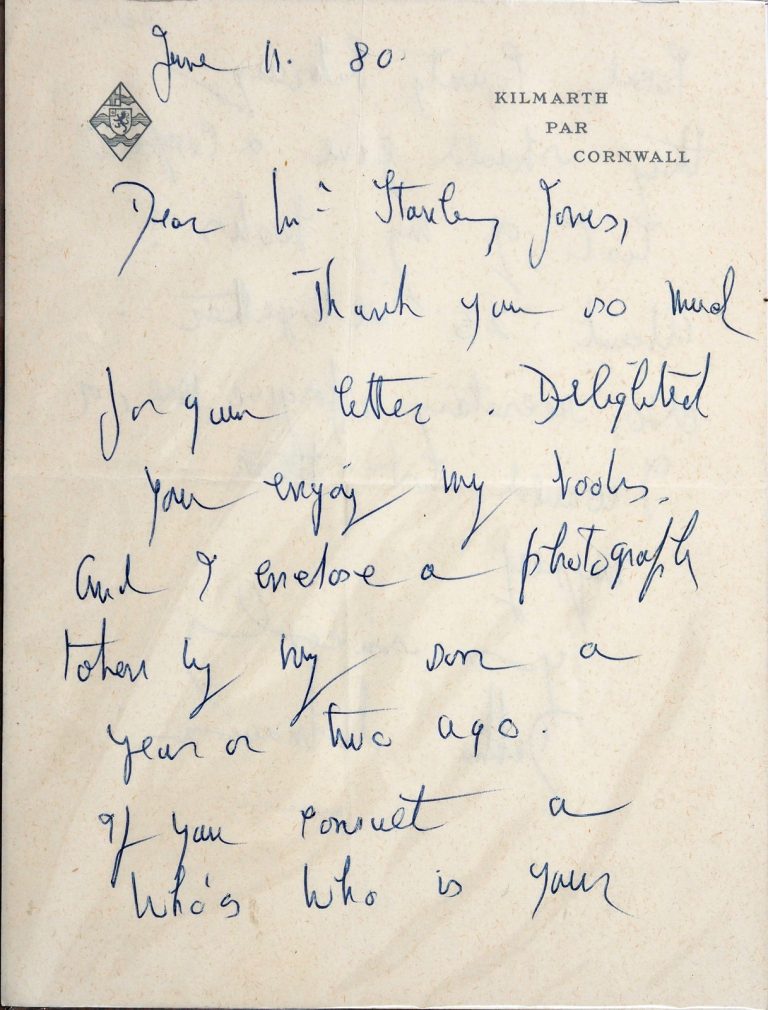 June 11. 80.
KILMARTH
PAR
CORNWALL
Dear Mr Stanley Jones,
Thank you so much
for your letter. Delighted
you enjoy my books.
And I enclose a photograph
taken by my son a
year or two ago.
If you consult a
Who's Who is your